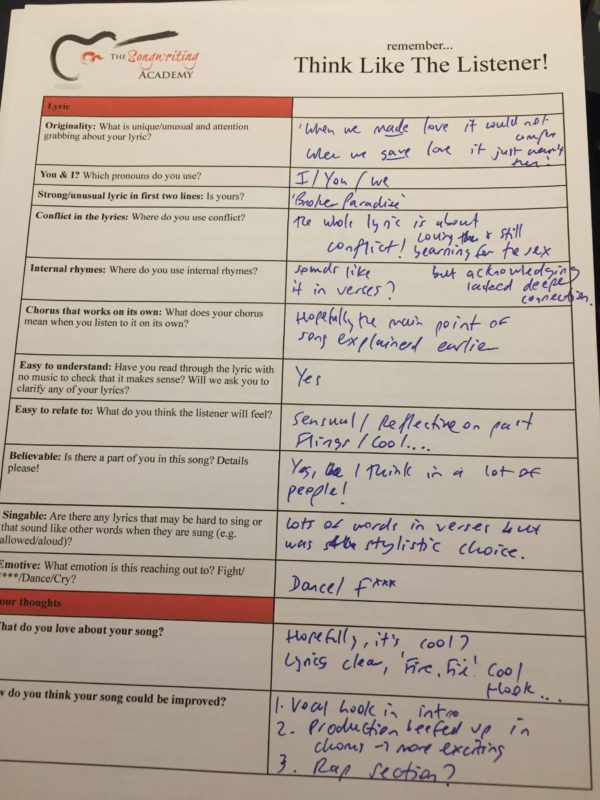 THE Songwriting
ACADEMY
remember...
Think Like The Listener!
Lyric
Originality: What is unique/unusual and attention
grabbing about your lyric?
'When we made love it could not
When we gave love it just wasn't
You & I? Which pronouns do you use?
I/You/we
Strong/unusual lyric in first two lines: Is yours?
'Broken Paradise'
Conflict in the lyrics: Where do you use conflict?
the whole lyric is about
conflict! loving & still
yearning for the sex
but acknowledging
lacked deeper
connection.
Internal rhymes: Where do you use internal rhymes?
sounds like
it in verses?
Chorus that works on its own: What does your chorus
mean when you listen to it on its own?
Hopefully the main point of
song explained earlier
Easy to understand: Have you read through the lyric with
no music to check that it makes sense? Will we ask you to
clarify any of your lyrics?
Yes
Easy to relate to: What do you think the listener will feel?
Sensual/Reflective on past
Flings/Cool....
Believable: Is there a part of you in this song? Details
please!
Yes, I think in a lot of
people!
Singable: Are there any lyrics that may be hard to sing or
that sound like other words when they are sung (e.g.
allowed/aloud)?
Lots of words in verses but
was stylistic choice.
Emotive: What emotion is this reaching out to? Fight/
***/Dance/Cry?
Dance/ F***
our thoughts
hat do you love about your song?
Hopefully, it's cool?
Lyrics clear, 'Fire, Fire' Cool
Hook...
w do you think your song could be improved?
1. Vocal hook in intro
2. Production beefed up in
chorus → more exciting
3. Rap section?